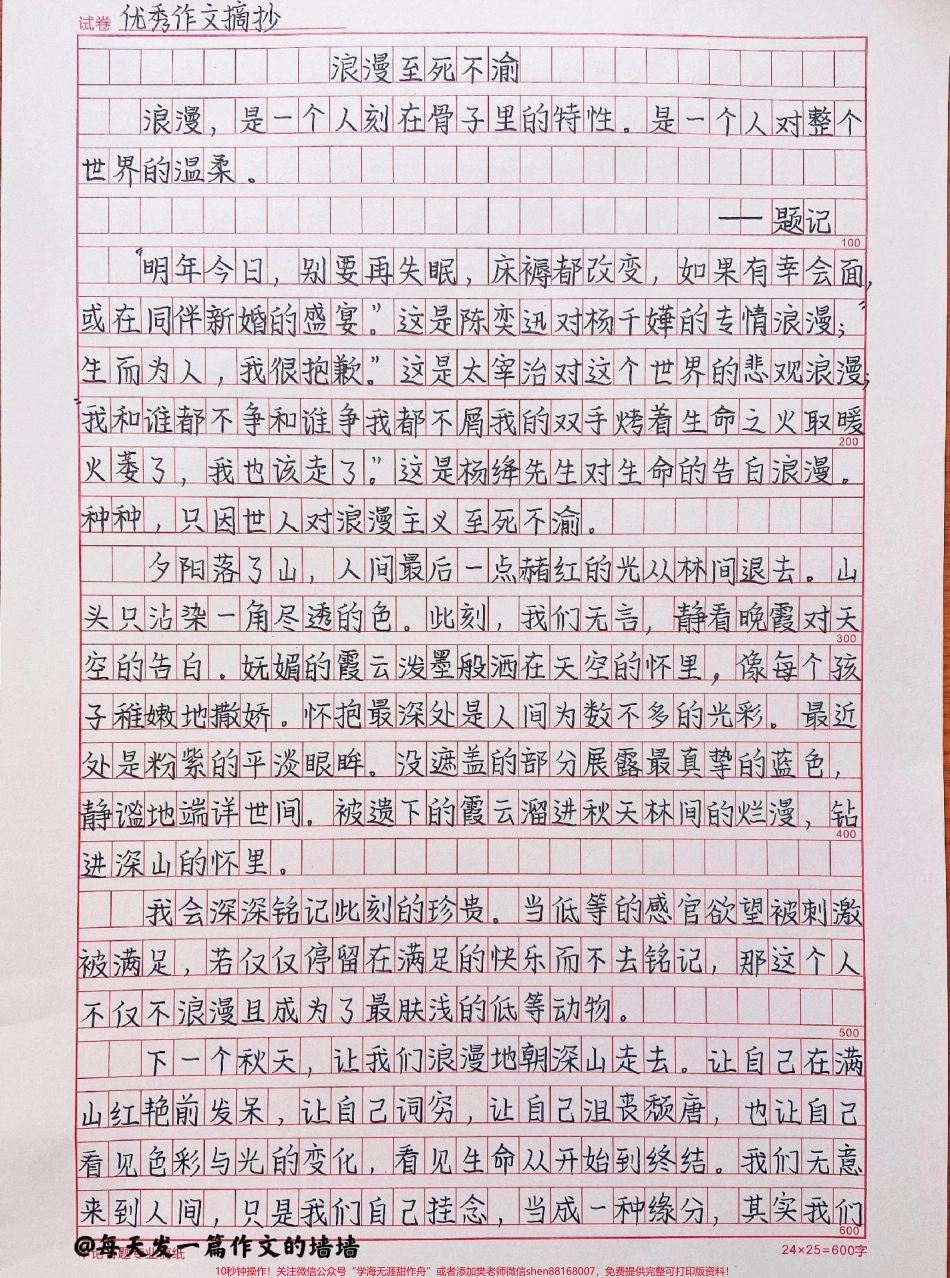 试卷 优秀作文摘抄
浪漫至死不渝
浪漫，是一个人刻在骨子里的特性。是一个人对整个
世界的温柔。
——题记
100
“明年今日，别要再失眠，床褥都改变，如果有幸会面，
或在同伴新婚的盛宴。”这是陈奕迅对杨千嬅的专情浪漫；“
生而为人，我很抱歉。”这是太宰治对这个世界的悲观浪漫；
“我和谁都不争和谁争我都不屑我的双手烤着生命之火取暖
200
火萎了，我也该走了”这是杨绛先生对生命的告白浪漫。
种种，只因世人对浪漫主义至死不渝。
夕阳落了山，人间最后一点赭红的光从林间退去。山
头只沾染一角尽透的色。此刻，我们无言，静看晚霞对天
300
空的告白。妩媚的霞云泼墨般洒在天空的怀里，像每个孩
子稚嫩地撒娇。怀抱最深处是人间为数不多的光彩。最近
处是粉紫的平淡眼眸。没遮盖的部分展露最真挚的蓝色，
静谧地端详世间。被遗下的霞云溜进秋天林间的烂漫，钻
400
进深山的怀里。
我会深深铭记此刻的珍贵。当低等的感官欲望被刺激
被满足，若仅仅停留在满足的快乐而不去铭记，那这个人
不仅不浪漫且成为了最肤浅的低等动物。
500
下一个秋天，让我们浪漫地朝深山走去。让自己在满
山红艳前发呆，让自己词穷，让自己沮丧颓唐，也让自己
看见色彩与光的变化，看见生命从开始到终结。我们无意
来到人间，只是我们自己挂念，当成一种缘分，其实我们
600
@每天发一篇作文的墙墙
24×25=600字
10秒钟操作！关注微信公众号“学海无涯甜作舟”或者添加樊老师微信shen88168007，免费提供完整可打印版资料！